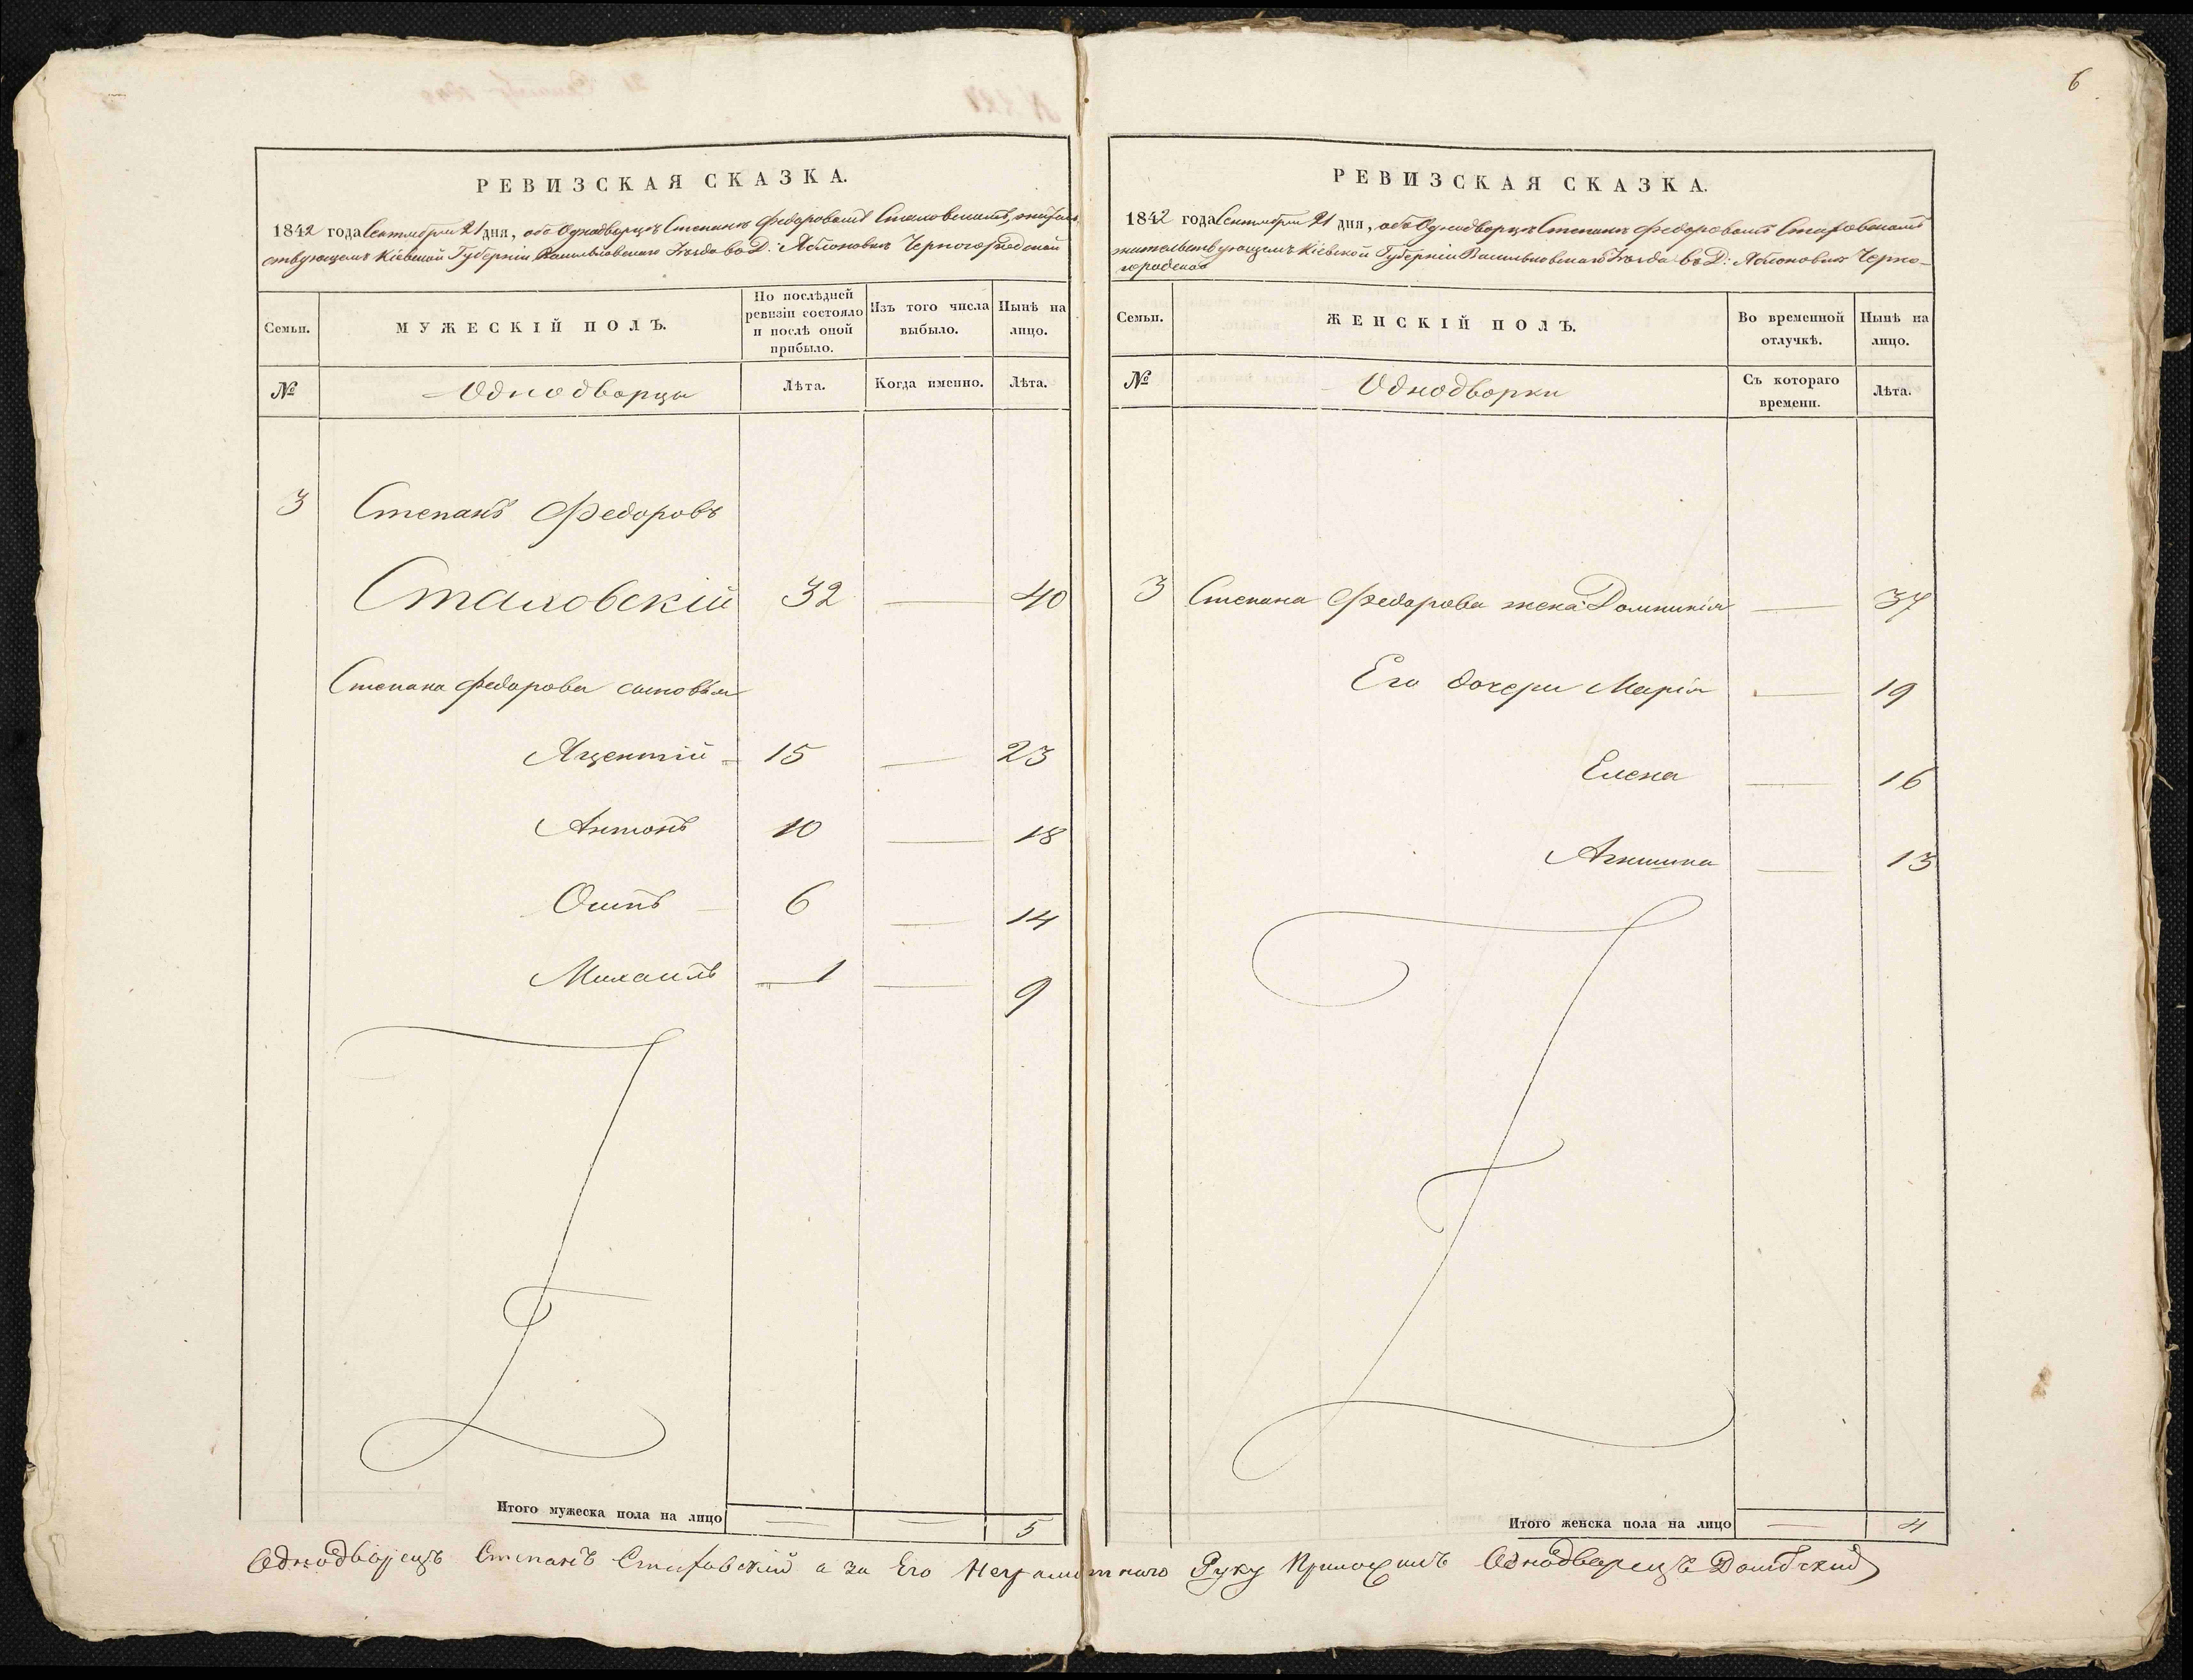 6
РЕВИЗСКАЯ СКАЗКА.
1842 года Сентября 21 дня, объ Однодворцѣ Степанѣ Федоровомъ Стаховскомъ, житель
ствующемъ Кіевской Губерніи Васильковскаго Уѣзда въ Д: Яблоновкѣ Черногородской
Семьи.
МУЖЕСКІЙ ПОЛЪ.
По послѣдней ревизіи состояло и послѣ оной прибыло.
Изъ того числа выбыло.
Нынѣ на лицо.
№
Однодворцы
Лѣта.
Когда именно.
Лѣта.
3 Степанъ Федоровъ
Стаховскій 32 — 40
Степана Федорова сыновья
Яцентій 15 — 23
Антонъ 10 — 18
Осипъ 6 — 14
Михаилъ 1 — 9
Итого мужеска пола на лицо — — 5
РЕВИЗСКАЯ СКАЗКА.
1842 года Сентября 21 дня, объ Однодворцѣ Степанѣ Федоровомъ Стаховскомъ
жительствующемъ Кіевской Губерніи Васильковскаго Уѣзда въ Д: Яблоновкѣ Черно-
городской
Семьи.
ЖЕНСКІЙ ПОЛЪ.
Во временной отлучкѣ.
Нынѣ на лицо.
№
Однодворки
Съ котораго времени.
Лѣта.
3 Степана Федорова жена Домникія — 37
Его дочери Марія — 19
Елена — 16
Агнишка — 13
Итого женска пола на лицо — 4
Однодворецъ Степанъ Стаховский а за Его Неграмотного Руку Приложилъ Однодворецъ